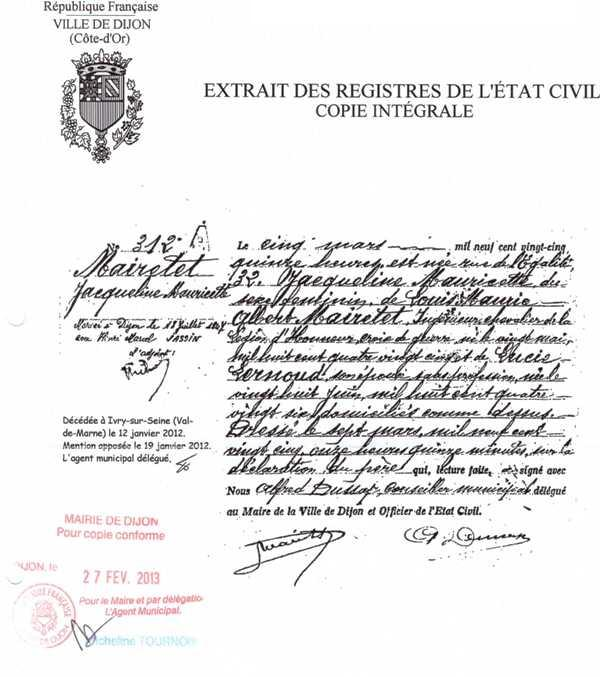 République Française
VILLE DE DIJON
(Côte-d'Or)
EXTRAIT DES REGISTRES DE L'ÉTAT CIVIL
COPIE INTÉGRALE
N° 312
Mairetet
Jacqueline Mauricette
Mariée à Dijon le 18 juillet
avec Henri Marcel SASSIN
L'adjoint:
Décédée à Ivry-sur-Seine (Val-
de-Marne) le 12 janvier 2012.
Mention apposée le 19 janvier 2012.
L'agent municipal délégué.
Le cinq mars mil neuf cent vingt-cinq
quinze heures, est née rue de l'Égalité
32 Jacqueline Mauricette du
sexe féminin, de Louis Maurice
Albert Mairetet, Ingénieur, chevalier de la
Légion d'Honneur, croix de guerre, né le vingt mai,
mil huit cent quatre vingt cinq et de Lucie
Pernoud, son épouse, sans profession, née le
vingt huit juin, mil huit cent quatre
vingt six, domiciliés comme dessus.
Dressé le sept mars, mil neuf cent
vingt cinq, onze heures quinze minutes, sur la
déclaration du père qui, lecture faite, a signé avec
Nous Alfred Conseiller municipal délégué
au Maire de la Ville de Dijon et Officier de l'Etat Civil.
MAIRIE DE DIJON
Pour copie conforme
DIJON, le
27 FEV. 2013
Pour le Maire et par délégation
L'Agent Municipal.
Micheline TOURNOIS